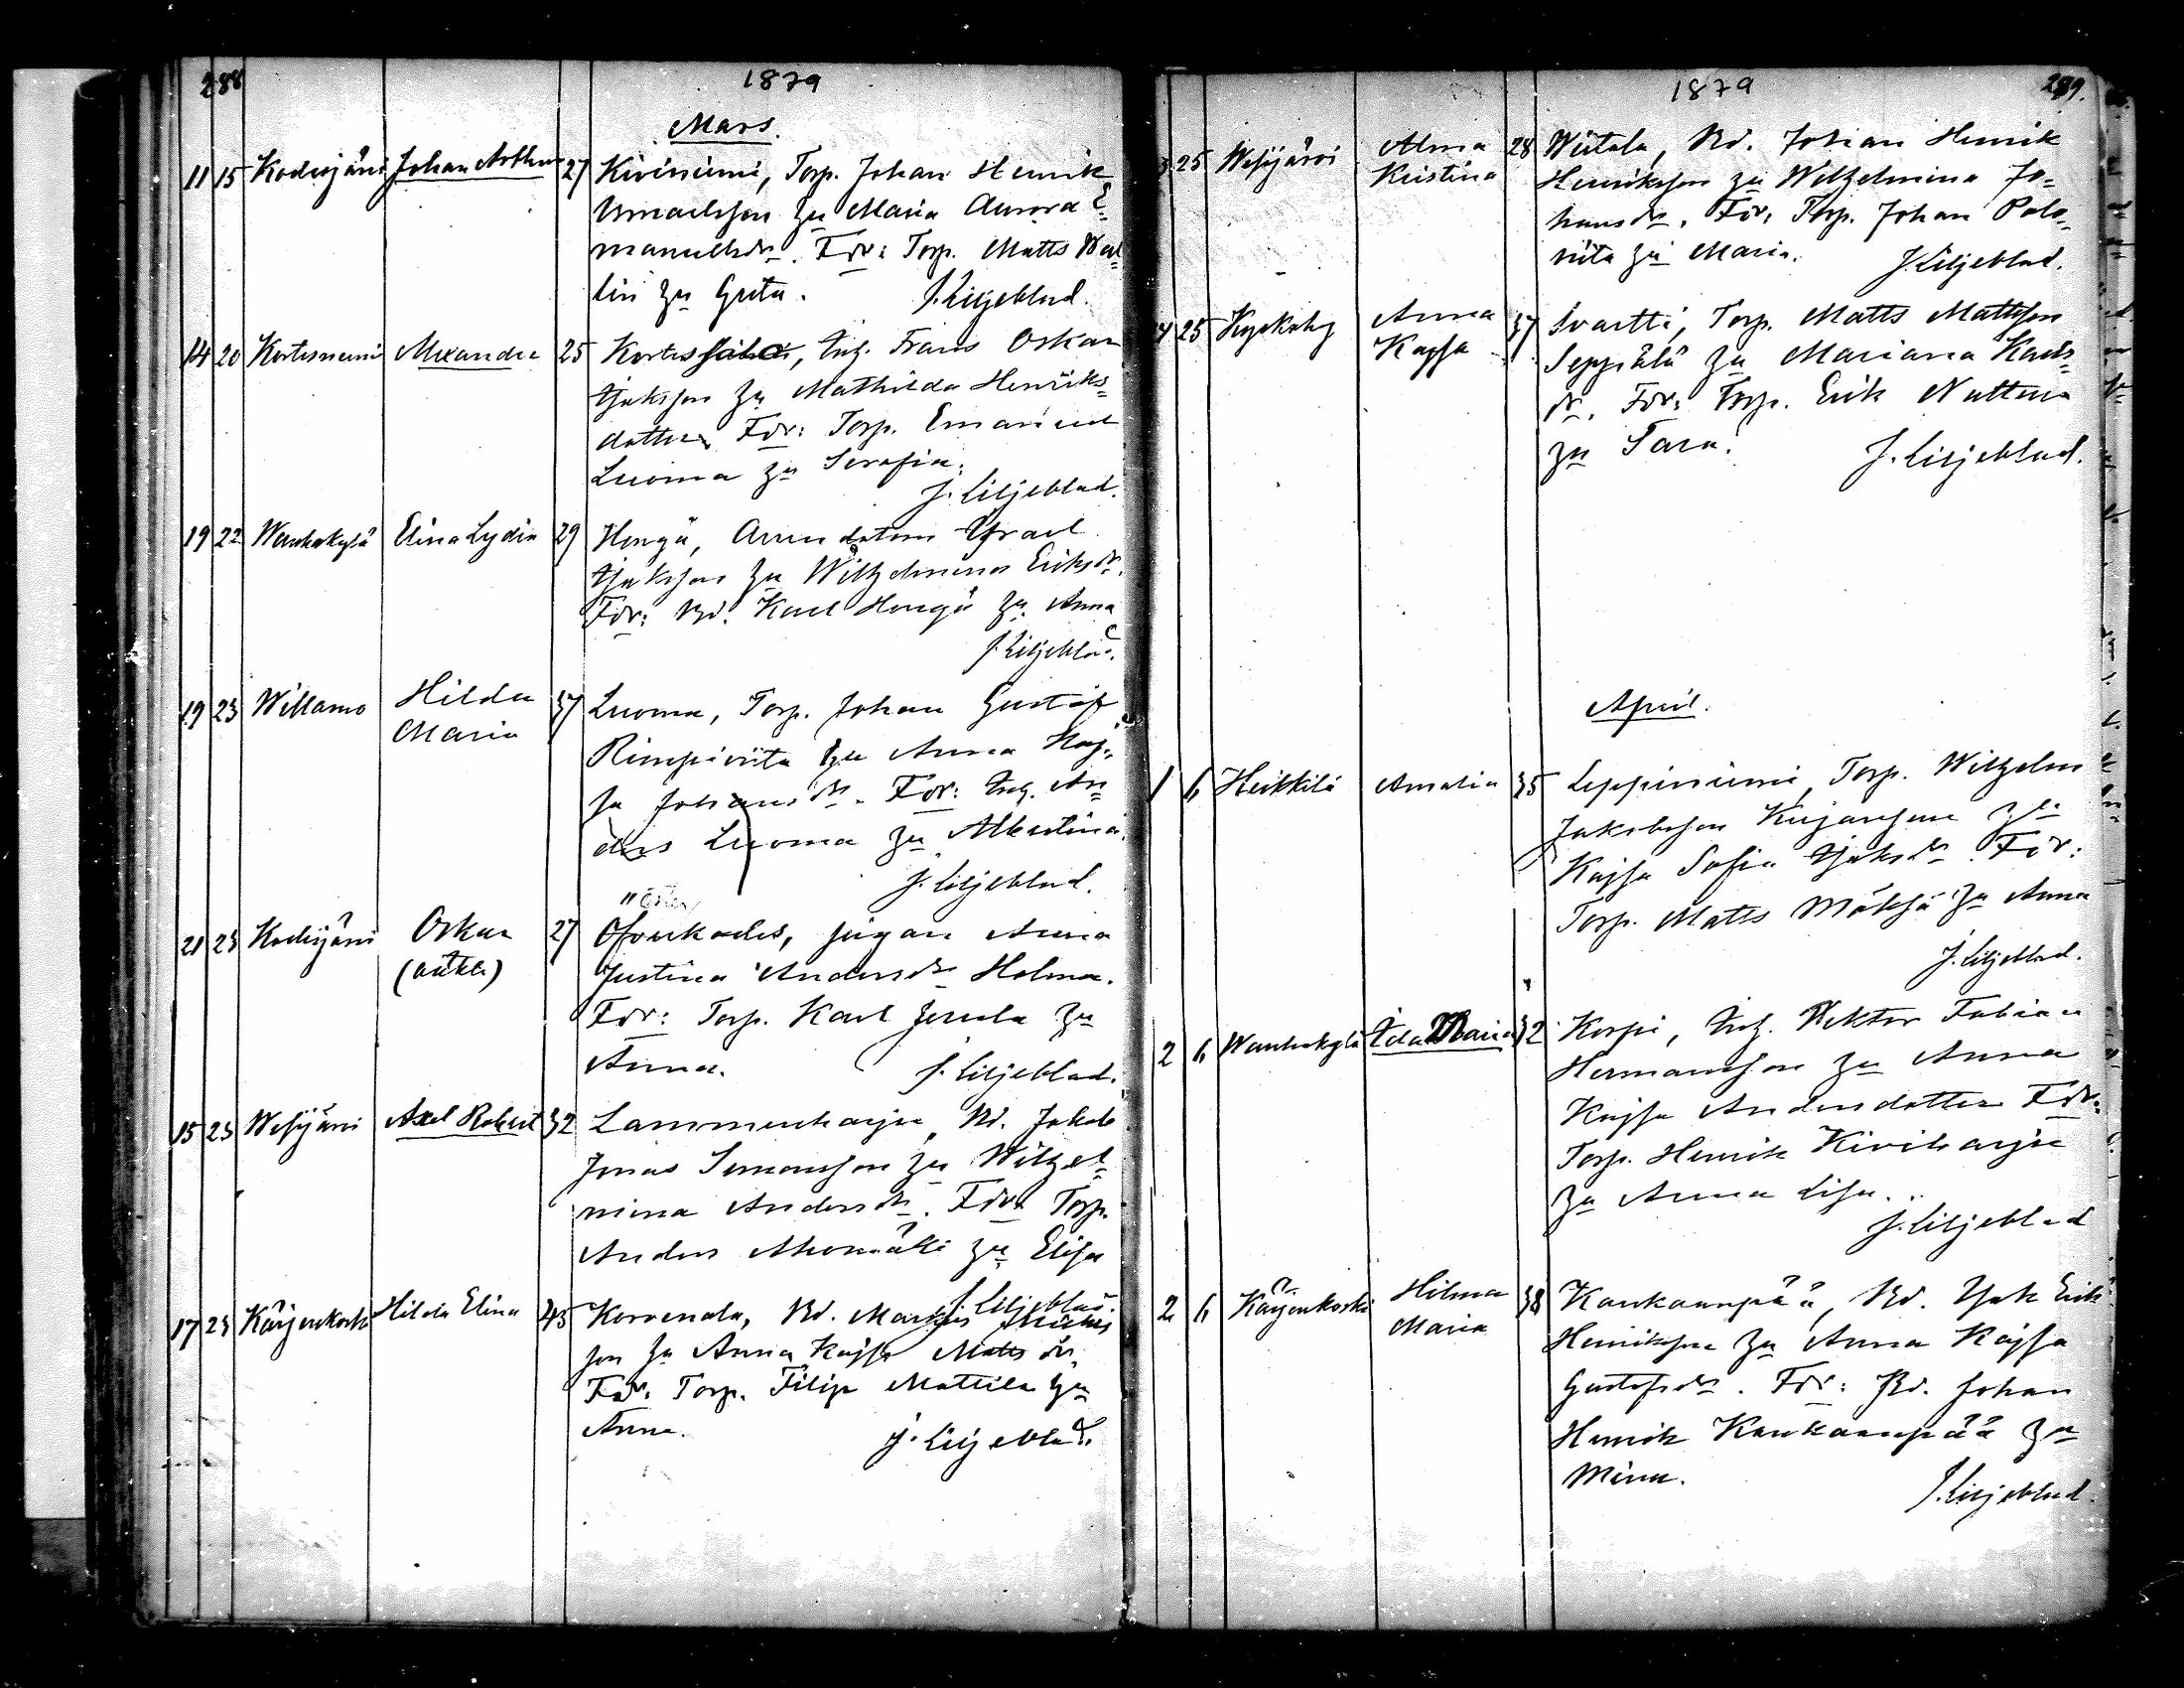 288
1879
Mars.
11 15 Kodesjärvi Johan Arthur 27 Kiviniemi, Torp. Johan Henrik
Ismaelsson hu Maria Aurora E-
manuelsdr. Fdr: Torp. Matts Wal-
lin hu Greta. J. Liljeblad.
14 20 Kortesniemi Alexandra 25 Kortes, Inh. Frans Oskar
Isaksson hu Mathilda Henriks-
dotter Fdr: Torp. Emanuel
Luoma hu Serafia.
J. Liljeblad.
19 22 Wanhakylä Elina Lydia 29 Hongu, Arrendatorn Israel
Isaksson hu Wilhelmina Eriksdr.
Fdr: Bd. Karl Hongu hu Anna
J. Liljeblad.
19 23 Willamo Hilda 37 Luoma, Torp. Johan Gustaf
Maria Rimpiviita hu Anna Kaj-
sa Johansdr. Fdr: Inh. An-
ders Luoma hu Albertina.
J. Liljeblad.
21 23 Kodesjärvi Oskar 27 Ofverkodes, pigan Anna
(oäkta) Justina Andersdr Holma.
Fdr: Torp. Karl hu
Anna. J. Liljeblad.
15 23 Wesijärvi Axel Robert 32 Lammenharju, Bd. Jakob
Jonas Simonsson hu Wilhel-
mina Andersdr. Fdr: Torp.
Anders hu Elisa
J. Liljeblad.
17 23 Kärjenkoski Hilda Elina 43 Korvenala, Bd. Markus
son hu Anna Kajsa Matts dr.
Fdr: Torp. Filip Mattila hu
Anna. J. Liljeblad.
1879
289.
25 Wesijärvi Alma 28 Wiitala, Bd. Johan Henrik
Kristina Henriksson hu Wilhelmina Jo-
hansdr. Fdr: Torp. Johan Palo-
viita hu Maria. J. Liljeblad.
25 Anna 37 Svartti, Torp. Matts Mattsson
Kajsa Seppälä hu Mariana Karls-
dr. Fdr: Torp. Erik
hu Sara. J. Liljeblad.
April.
1 6 Heikkilä Amalia 35 Leppiniemi, Torp. Wilhelm
Jakobsson hu
Kajsa Sofia Isaksdr. Fdr:
Torp. Matts hu Anna
J. Liljeblad.
2 6 Wanhakylä Ida Maria 32 Korpi, Inh. Wiktor Fabian
Hermansson hu Anna
Kajsa Andersdotter Fdr:
Torp. Henrik Kiviharju
hu Anna Lisa.
J. Liljeblad
2 6 Kärjenkoski Hilma 38 Kankaanpää, Bd. Isak Erik
Maria Henriksson hu Anna Kajsa
Gustafsdr. Fdr: Bd. Johan
Henrik Kankaanpää hu
Mina.
J. Liljeblad.